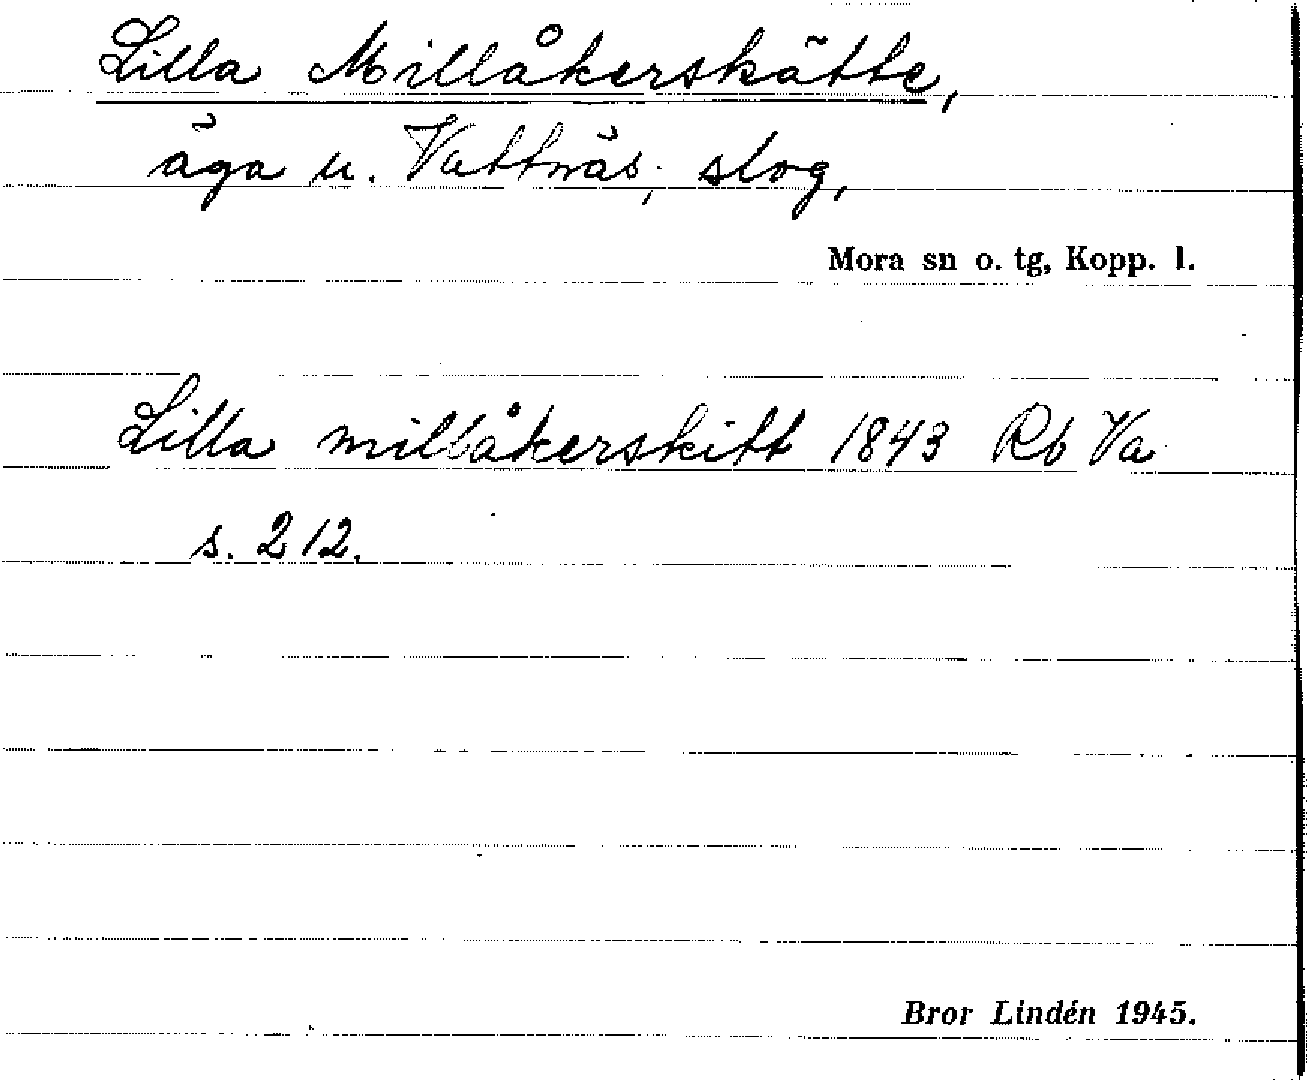 Lilla Millåkerskätte,
äga u. Vattnäs; slog,
Mora sn o. tg, Kopp. l.
Lilla millåkerskitt 1843 Rb Va
s. 212.
Bror Lindén 1945.